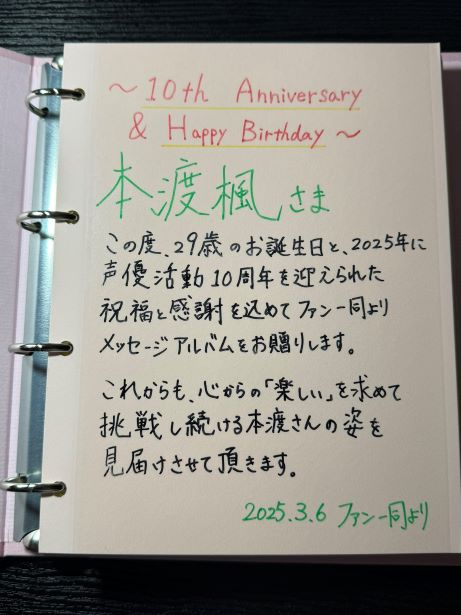 ～10th Anniversary
& Happy Birthday～
本渡楓さま
この度、29歳のお誕生日と、2025年に
声優活動10周年を迎えられた
祝福と感謝を込めてファン一同より
メッセージアルバムをお贈りします。
これからも、心からの「楽しい」を求めて
挑戦し続ける本渡さんの姿を
見届けさせて頂きます。
2025.3.6 ファン一同より